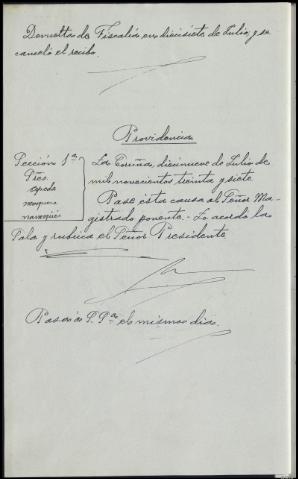 Devuelta de Fiscalía en diecisiete de Julio, y se
canceló el recibo.
Providencia
Sección 1ª
Pres.
La Coruña, diecinueve de Julio de
mil novecientos treinta y siete
Pase esta causa al Señor Ma-
gistrado ponente.- Lo acordó la
Sala y rubrica el Señor Presidente
el mismo dia.